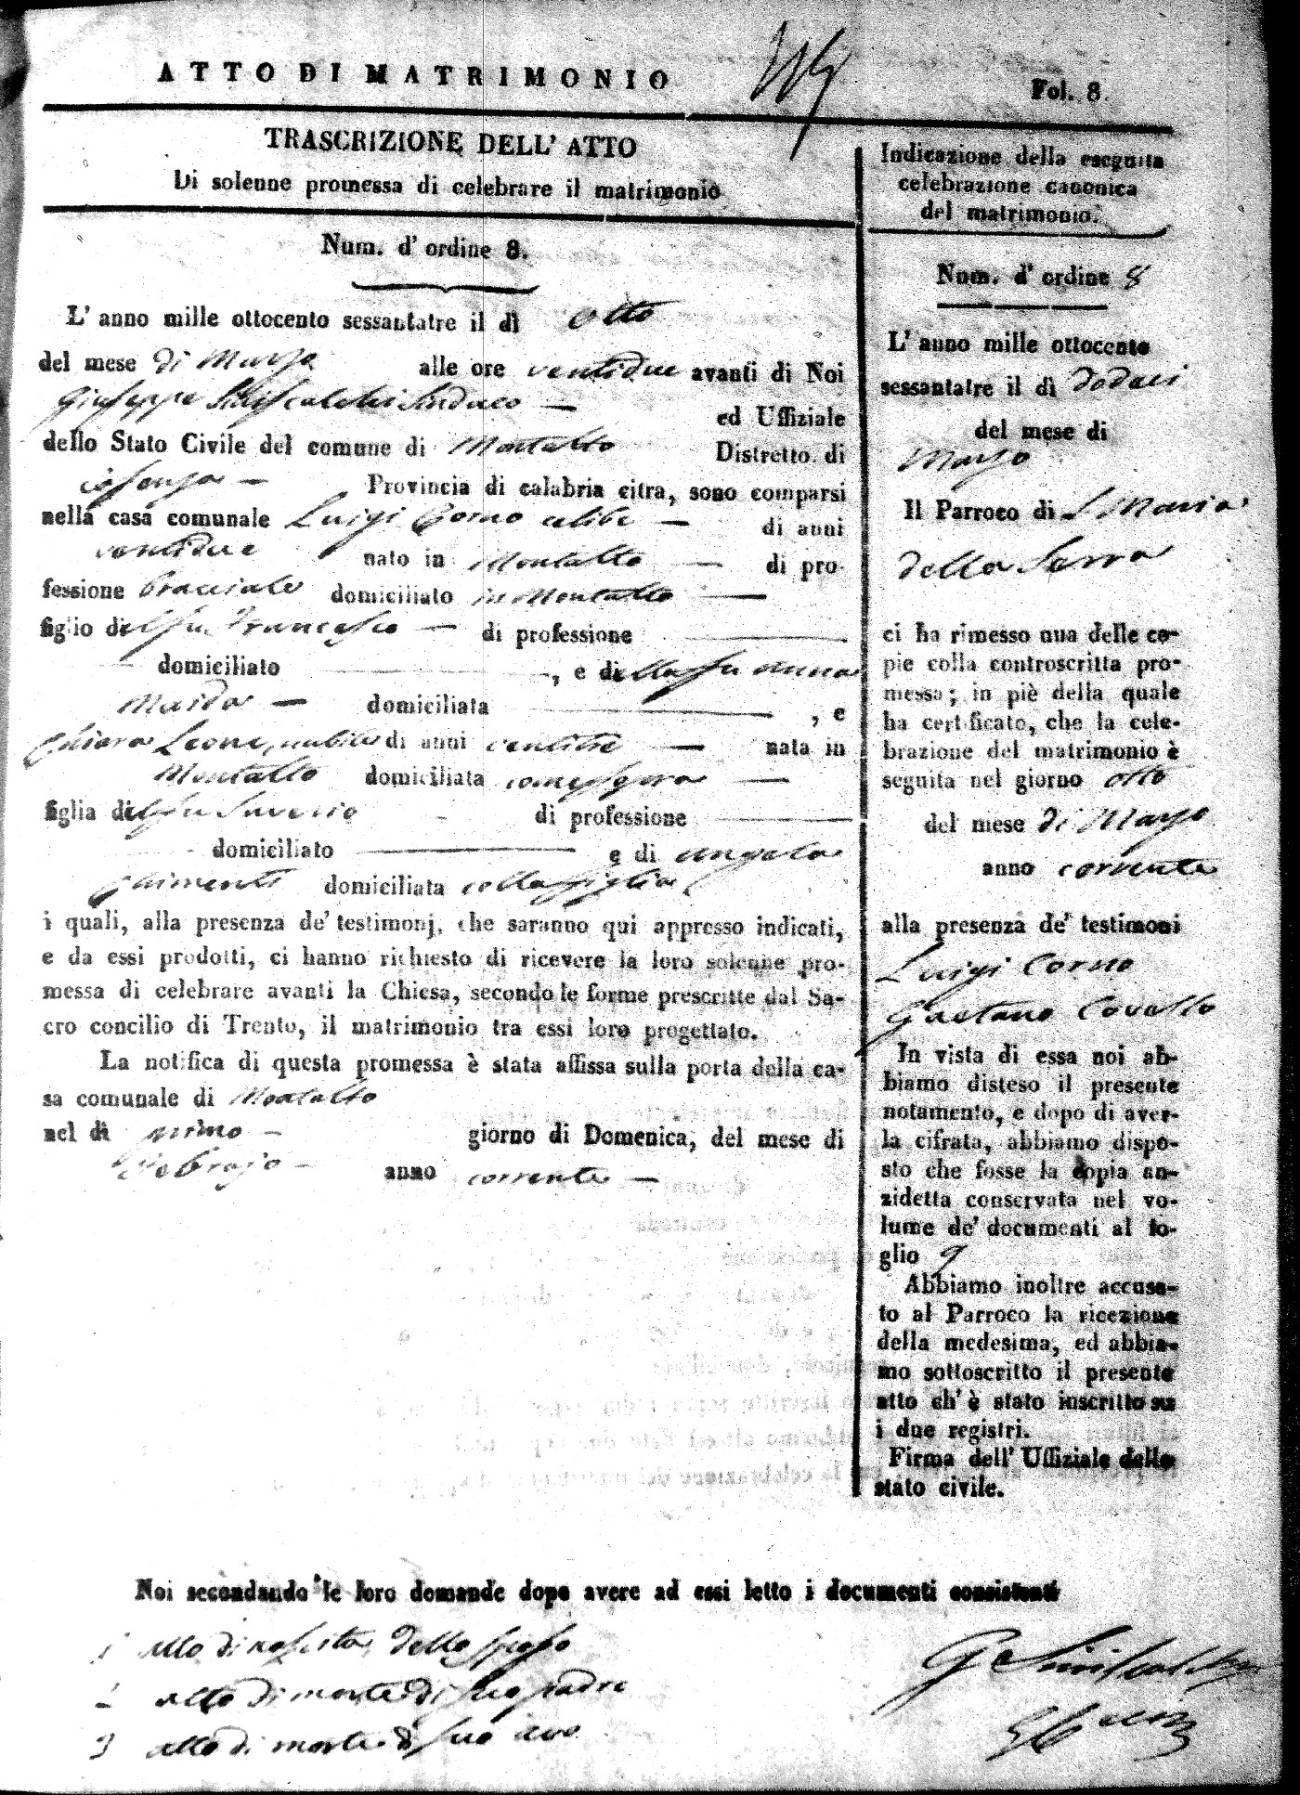 ATTO DI MATRIMONIO
Fol. 8.
TRASCRIZIONE DELL' ATTO
Di solenne promessa di celebrare il matrimonio
Num. d' ordine 8.
L' anno mille ottocento sessantatre il dì otto
del mese di Marzo alle ore ventidue avanti di Noi
Giuseppe Siniscalchi Sindaco ed Uffiziale
dello Stato Civile del comune di Montalto Distretto di
Cosenza Provincia di calabria citra, sono comparsi
nella casa comunale Luigi Corno celibe di anni
ventidue nato in Montalto di pro-
fessione Bracciale domiciliato in Montalto
figlio del fu Francesco di professione
domiciliato , e della fu Anna
Maida domiciliata , e
Chiara Leone, nubile di anni ventitre nata in
Montalto domiciliata come sopra
figlia del fu Saverio di professione
domiciliato e di Angela
Chimenti domiciliata colla figlia
i quali, alla presenza de' testimonj, che saranno qui appresso indicati,
e da essi prodotti, ci hanno richiesto di ricevere la loro solenne pro-
messa di celebrare avanti la Chiesa, secondo le forme prescritte dal Sa-
cro concilio di Trento, il matrimonio tra essi loro progettato.
La notifica di questa promessa è stata affissa sulla porta della ca-
sa comunale di Montalto
nel dì primo giorno di Domenica, del mese di
Febrajo anno corrente
Indicazione della eseguita
celebrazione canonica
del matrimonio.
Num. d' ordine 8
L' anno mille ottocento
sessantatre il dì dodeci
del mese di
Marzo
Il Parroco di S Maria
della Serra
ci ha rimesso una delle co-
pie colla controscritta pro-
messa; in piè della quale
ha certificato, che la cele-
brazione del matrimonio è
seguita nel giorno otto
del mese di Marzo
anno corrente
alla presenza de' testimoni
Luigi Corno
Gaetano Covello
In vista di essa noi ab-
biamo disteso il presente
notamento, e dopo di aver-
la cifrata, abbiamo dispo-
sto che fosse la copia an-
zidetta conservata nel vo-
lume de' documenti al fo-
glio 9
Abbiamo inoltre accusa-
to al Parroco la ricezione
della medesima, ed abbia-
mo sottoscritto il presente
atto ch' è stato inscritto su
i due registri.
Firma dell' Uffiziale dello
stato civile.
Noi secondando le loro domande dopo avere ad essi letto i documenti consistenti
1 Atto di nascita dello sposo
2 atto di morte di suo padre
3 atto di morte di suo avo
G Siniscalchi